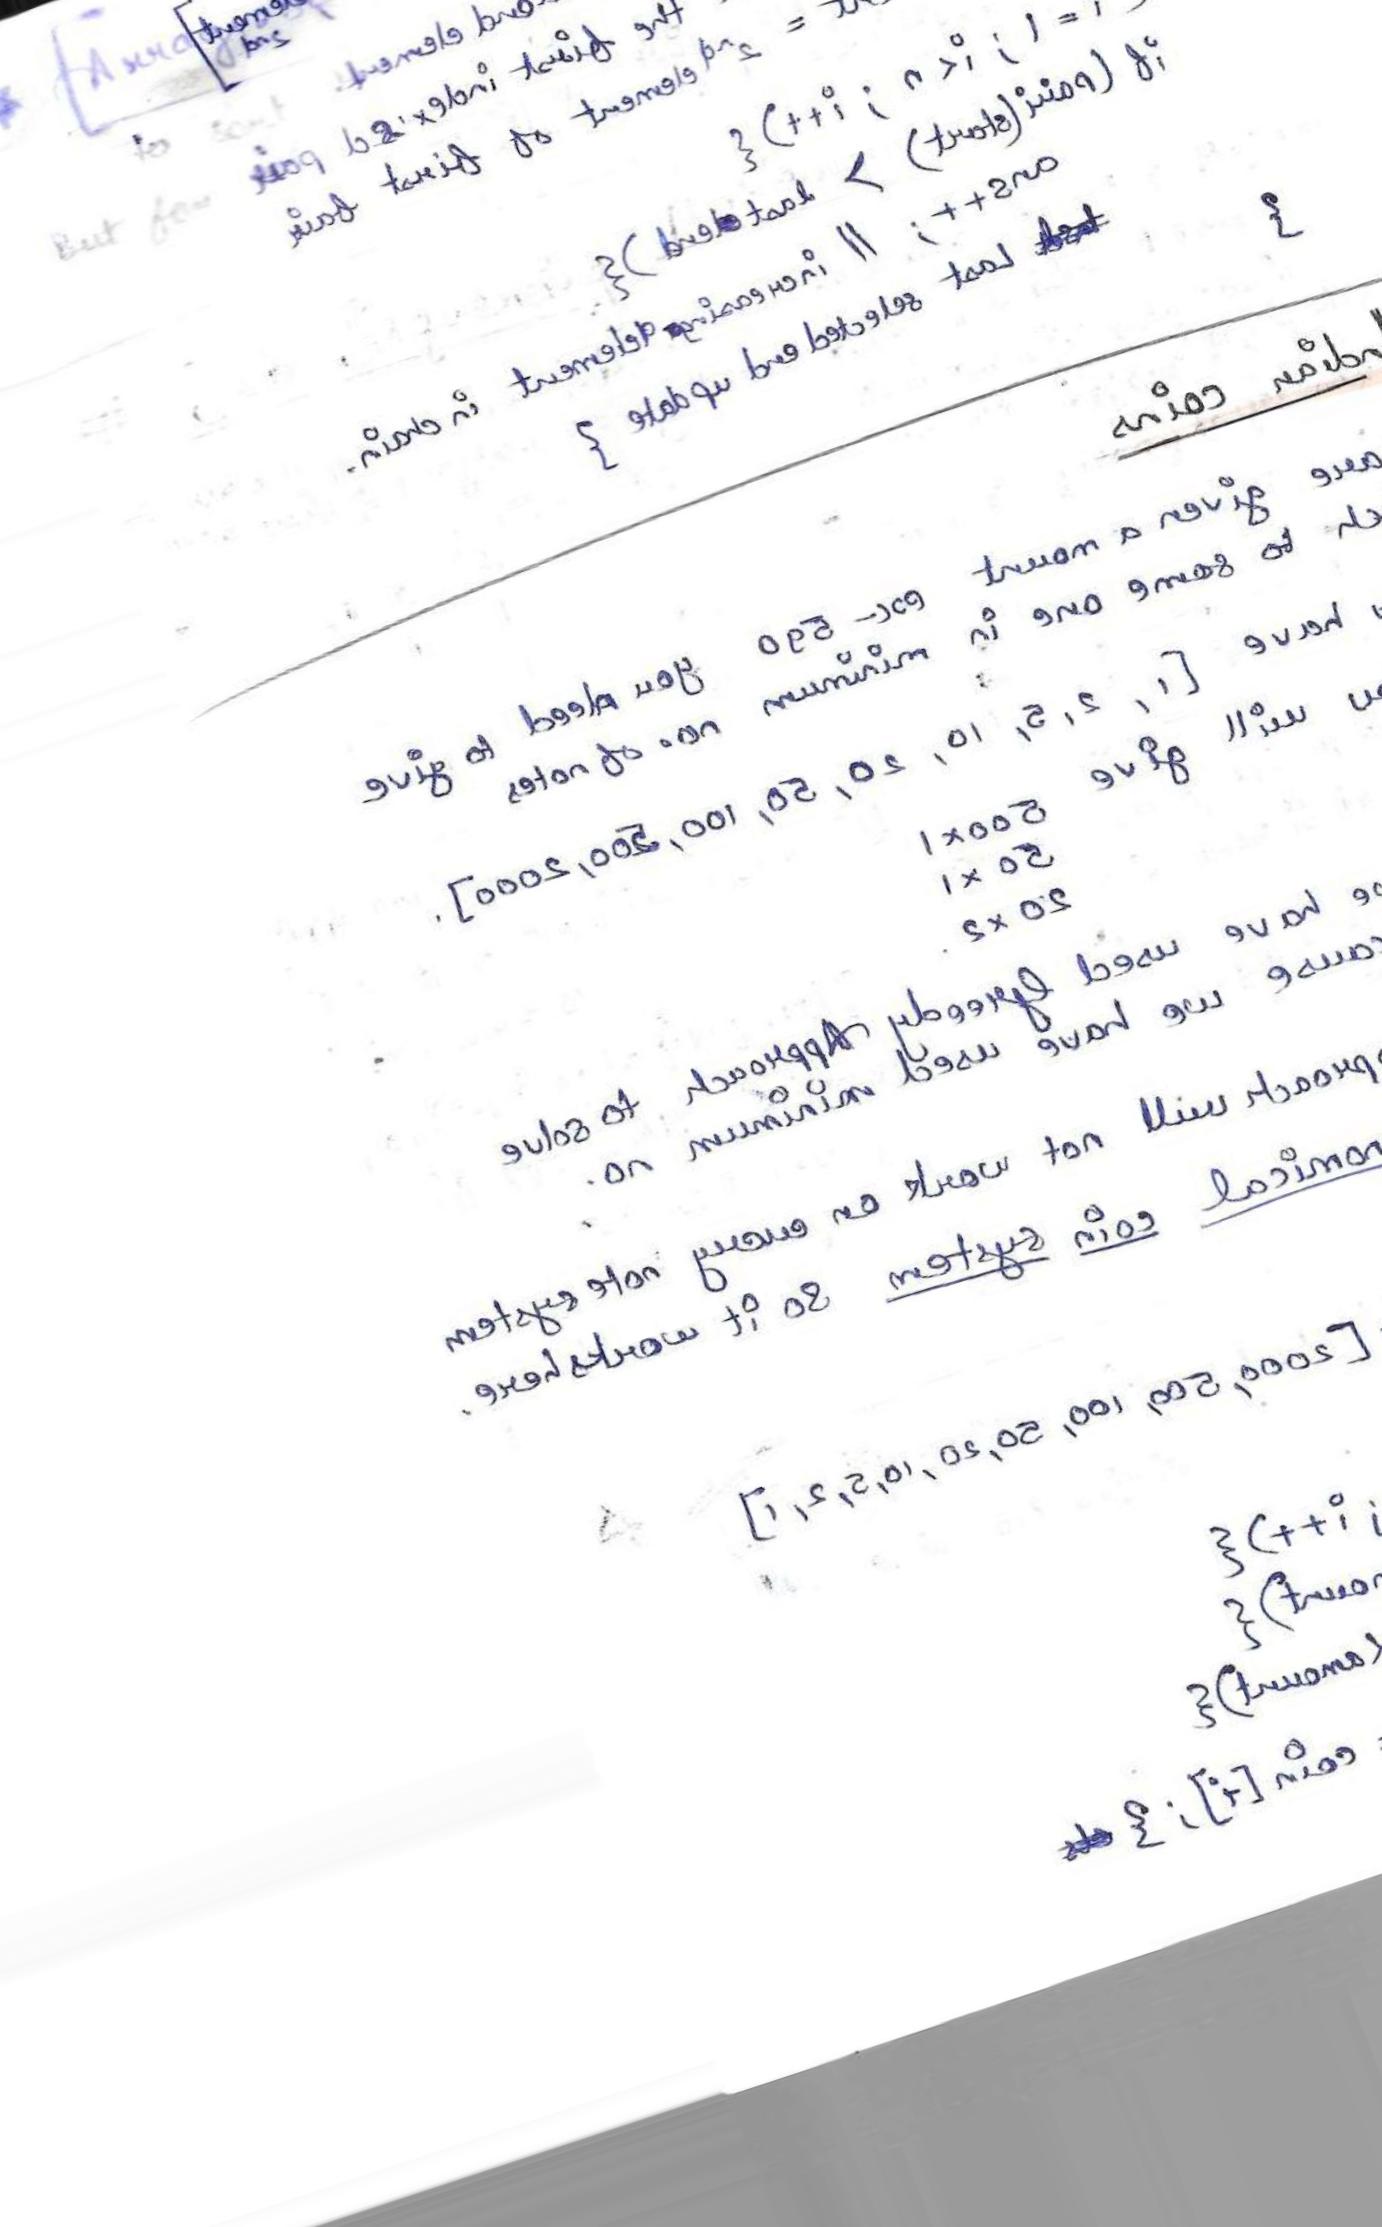 2nd
element
second element.
the first indexed pair
= 2nd element of first pair
i = 1 ; i < n ; i++){
if (pair(start) > last end){
ans++; // increasing element in chain.
last selected end update }
}
Indian coins
given a mount ex- 590 you need to give
to some one in minimum no. of notes
have [1, 2, 5, 10, 20, 50, 100, 500, 2000].
will give 500x1
50 x1
20 x2
have used Greedy Approach to solve
we have used minimum no.
approach will not work on every note system
coin system so it works here.
[2000, 500, 100, 50, 20, 10, 5, 2, 1]
; i++){
amount){
amount){
= coin [i]; }
But for
to sort